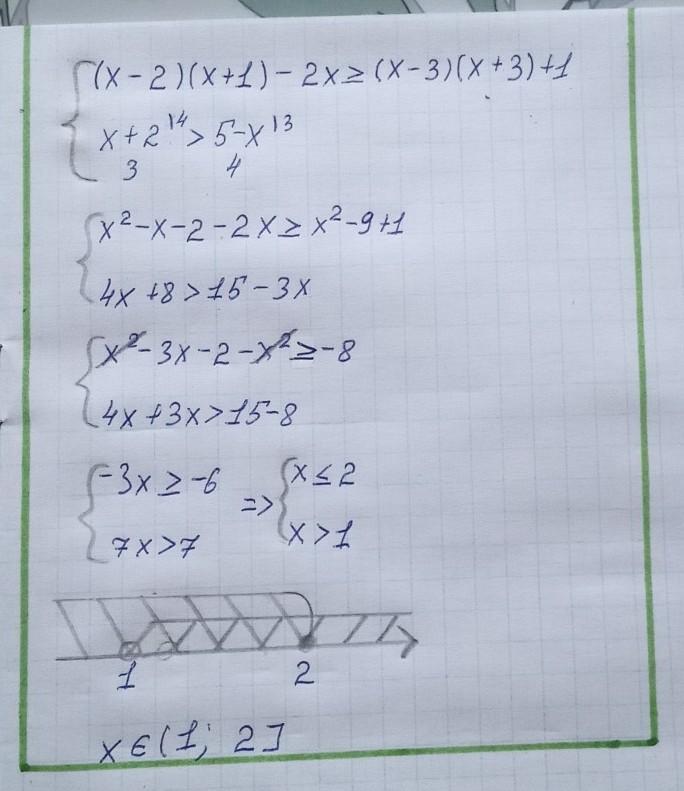 (x-2)(x+1)-2x≥(x-3)(x+3)+1
x+2|4 > 5-x|3
3 4
x²-x-2-2x≥x²-9+1
4x+8>15-3x
x²-3x-2-x²≥-8
4x+3x>15-8
-3x≥-6 => x≤2
7x>7 x>1
1 2
x∈(1; 2]